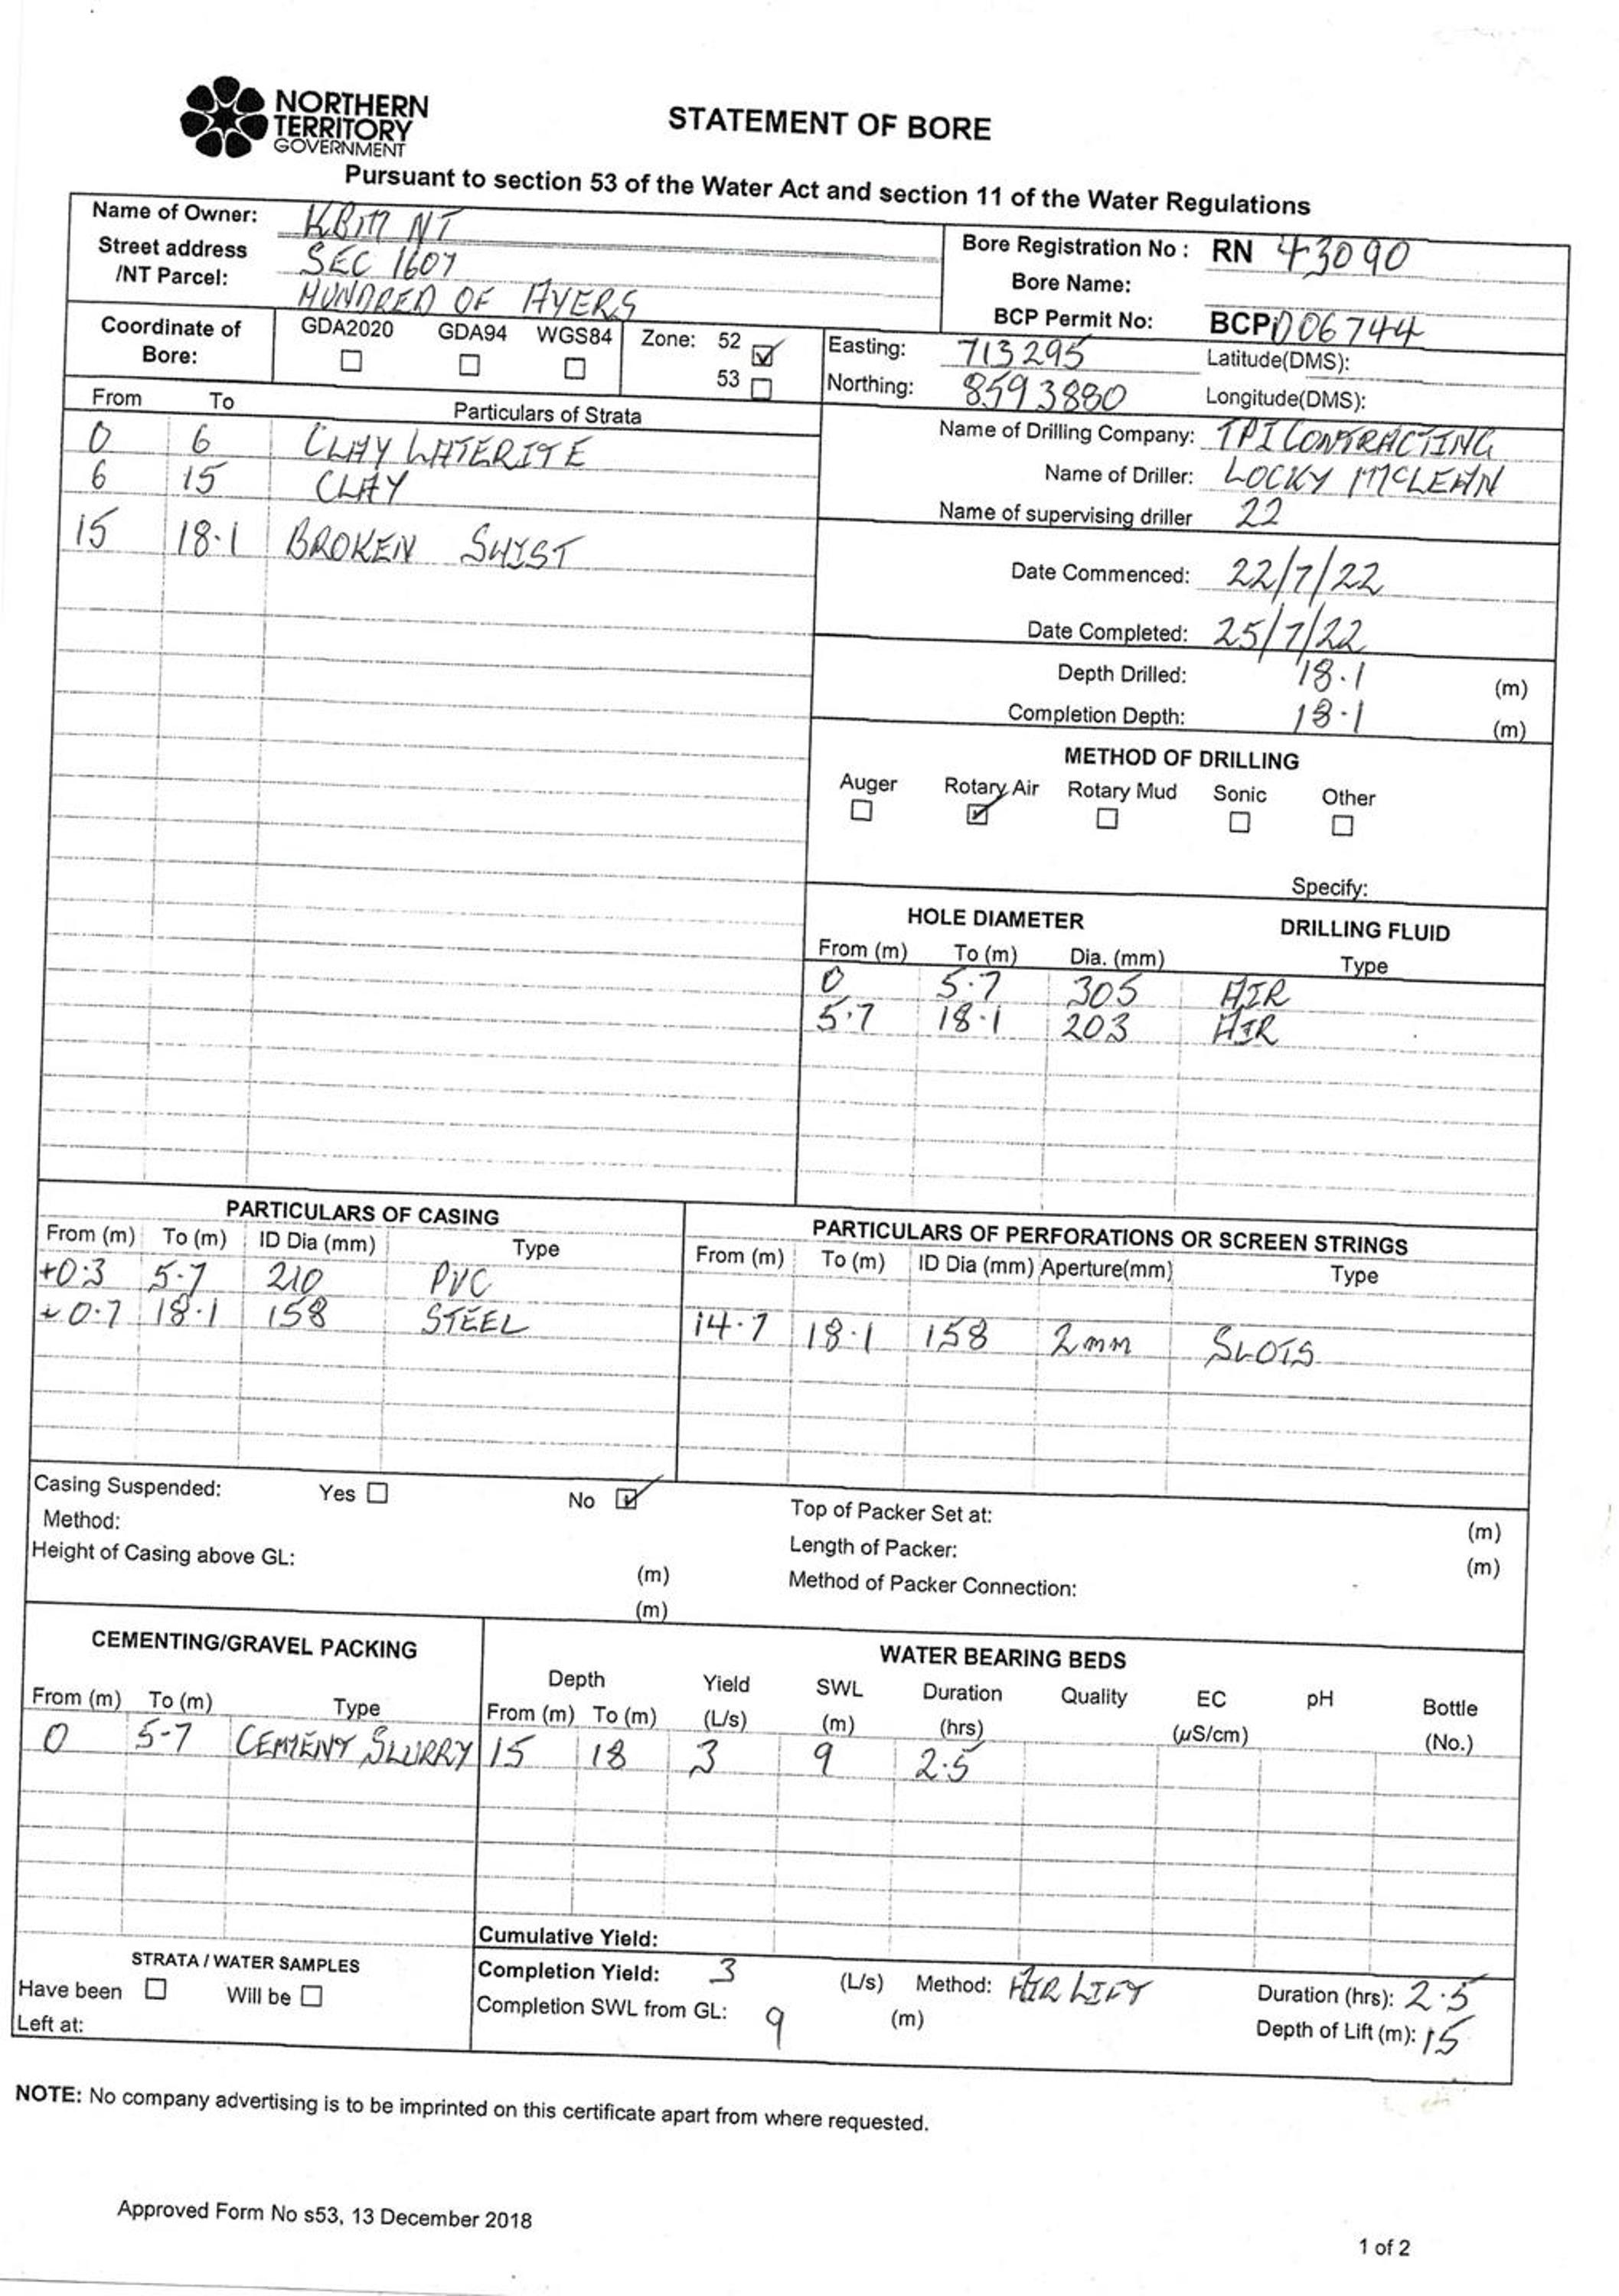 NORTHERN
TERRITORY
GOVERNMENT
STATEMENT OF BORE
Pursuant to section 53 of the Water Act and section 11 of the Water Regulations
Name of Owner: KBM NT
Street address SEC 1607
/NT Parcel: HUNDRED OF AYERS
Bore Registration No : RN 43090
Bore Name:
BCP Permit No: BCPD06744
Coordinate of Bore: GDA2020 ☐ GDA94 ☐ WGS84 ☐ Zone: 52 ☑ 53 ☐
Easting: 713295 Latitude(DMS):
Northing: 8593880 Longitude(DMS):
From To Particulars of Strata
0 6 CLAY LATERITE
6 15 CLAY
15 18.1 BROKEN SHIST
Name of Drilling Company: TPI CONTRACTING
Name of Driller: LOCKY MCLEAN
Name of supervising driller 22
Date Commenced: 22/7/22
Date Completed: 25/7/22
Depth Drilled: 18.1 (m)
Completion Depth: 18.1 (m)
METHOD OF DRILLING
Auger ☐ Rotary Air ☑ Rotary Mud ☐ Sonic ☐ Other ☐
Specify:
HOLE DIAMETER DRILLING FLUID
From (m) To (m) Dia. (mm) Type
0 5.7 305 AIR
5.7 18.1 203 AIR
PARTICULARS OF CASING
From (m) To (m) ID Dia (mm) Type
+0.3 5.7 210 PVC
+0.7 18.1 158 STEEL
PARTICULARS OF PERFORATIONS OR SCREEN STRINGS
From (m) To (m) ID Dia (mm) Aperture(mm) Type
14.7 18.1 158 2mm SLOTS
Casing Suspended: Yes ☐ No ☑
Method:
Height of Casing above GL: (m)
(m)
Top of Packer Set at: (m)
Length of Packer: (m)
Method of Packer Connection:
CEMENTING/GRAVEL PACKING
From (m) To (m) Type
0 5.7 CEMENT SLURRY
WATER BEARING BEDS
Depth Yield SWL Duration Quality EC pH Bottle
From (m) To (m) (L/s) (m) (hrs) (µS/cm) (No.)
15 18 3 9 2.5
Cumulative Yield:
STRATA / WATER SAMPLES
Have been ☐ Will be ☐
Left at:
Completion Yield: 3 (L/s) Method: AIR LIFT Duration (hrs): 2.5
Completion SWL from GL: 9 (m) Depth of Lift (m): 15
NOTE: No company advertising is to be imprinted on this certificate apart from where requested.
Approved Form No s53, 13 December 2018
1 of 2